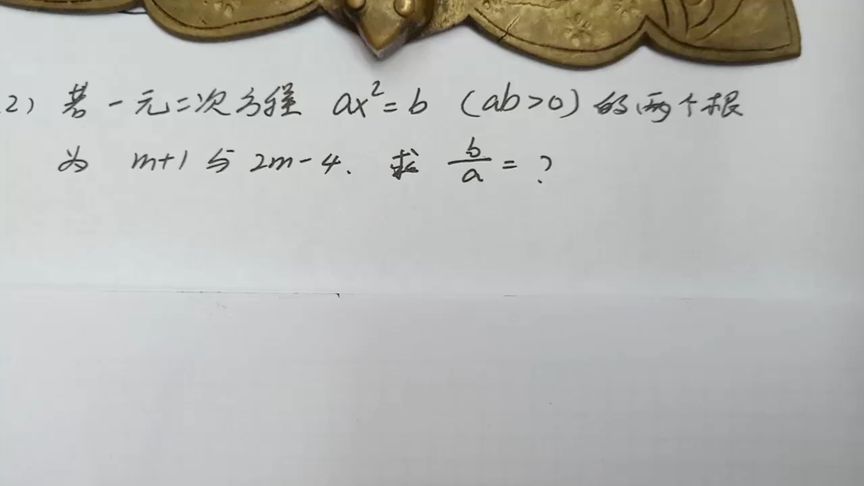 2) 若一元二次方程 ax²=b (ab>0) 的两个根
为 m+1 与 2m-4. 求 b/a = ?